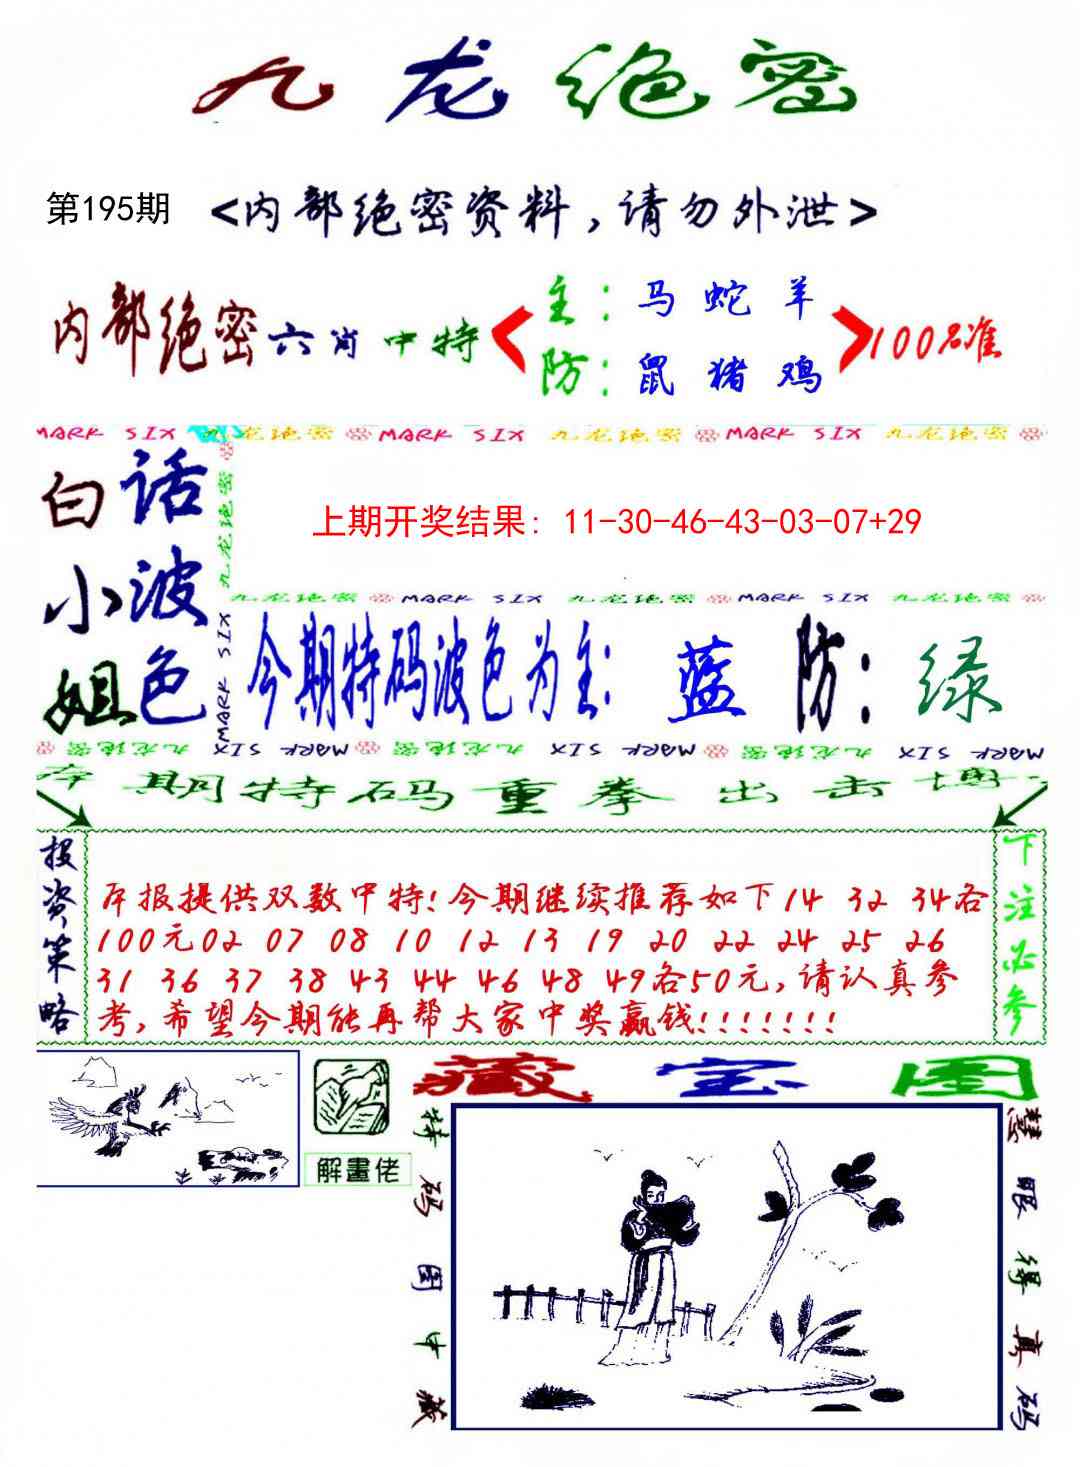 九龙绝密
第195期 <内部绝密资料,请勿外泄>
内部绝密六肖中特
主:马 蛇 羊
防:鼠 猪 鸡
100%准
MARK SIX 九龙绝密 MARK SIX 九龙绝密 MARK SIX 九龙绝密
白小姐
话波色
九龙绝密
MARK SIX
上期开奖结果: 11-30-46-43-03-07+29
九龙绝密 MARK SIX 九龙绝密 MARK SIX 九龙绝密
今期特码波色为主: 蓝 防: 绿
九龙绝密 MARK SIX 九龙绝密 MARK SIX 九龙绝密 MARK SIX
本期特码重拳出击博
投资策略
本报提供双数中特!今期继续推荐如下14 32 34各
100元02 07 08 10 12 13 19 20 22 24 25 26
31 36 37 38 43 44 46 48 49各50元,请认真参
考,希望今期能再帮大家中奖赢钱!!!!!!!
下注必参
解畫佬
藏宝图
特码图中藏
慧眼得真码